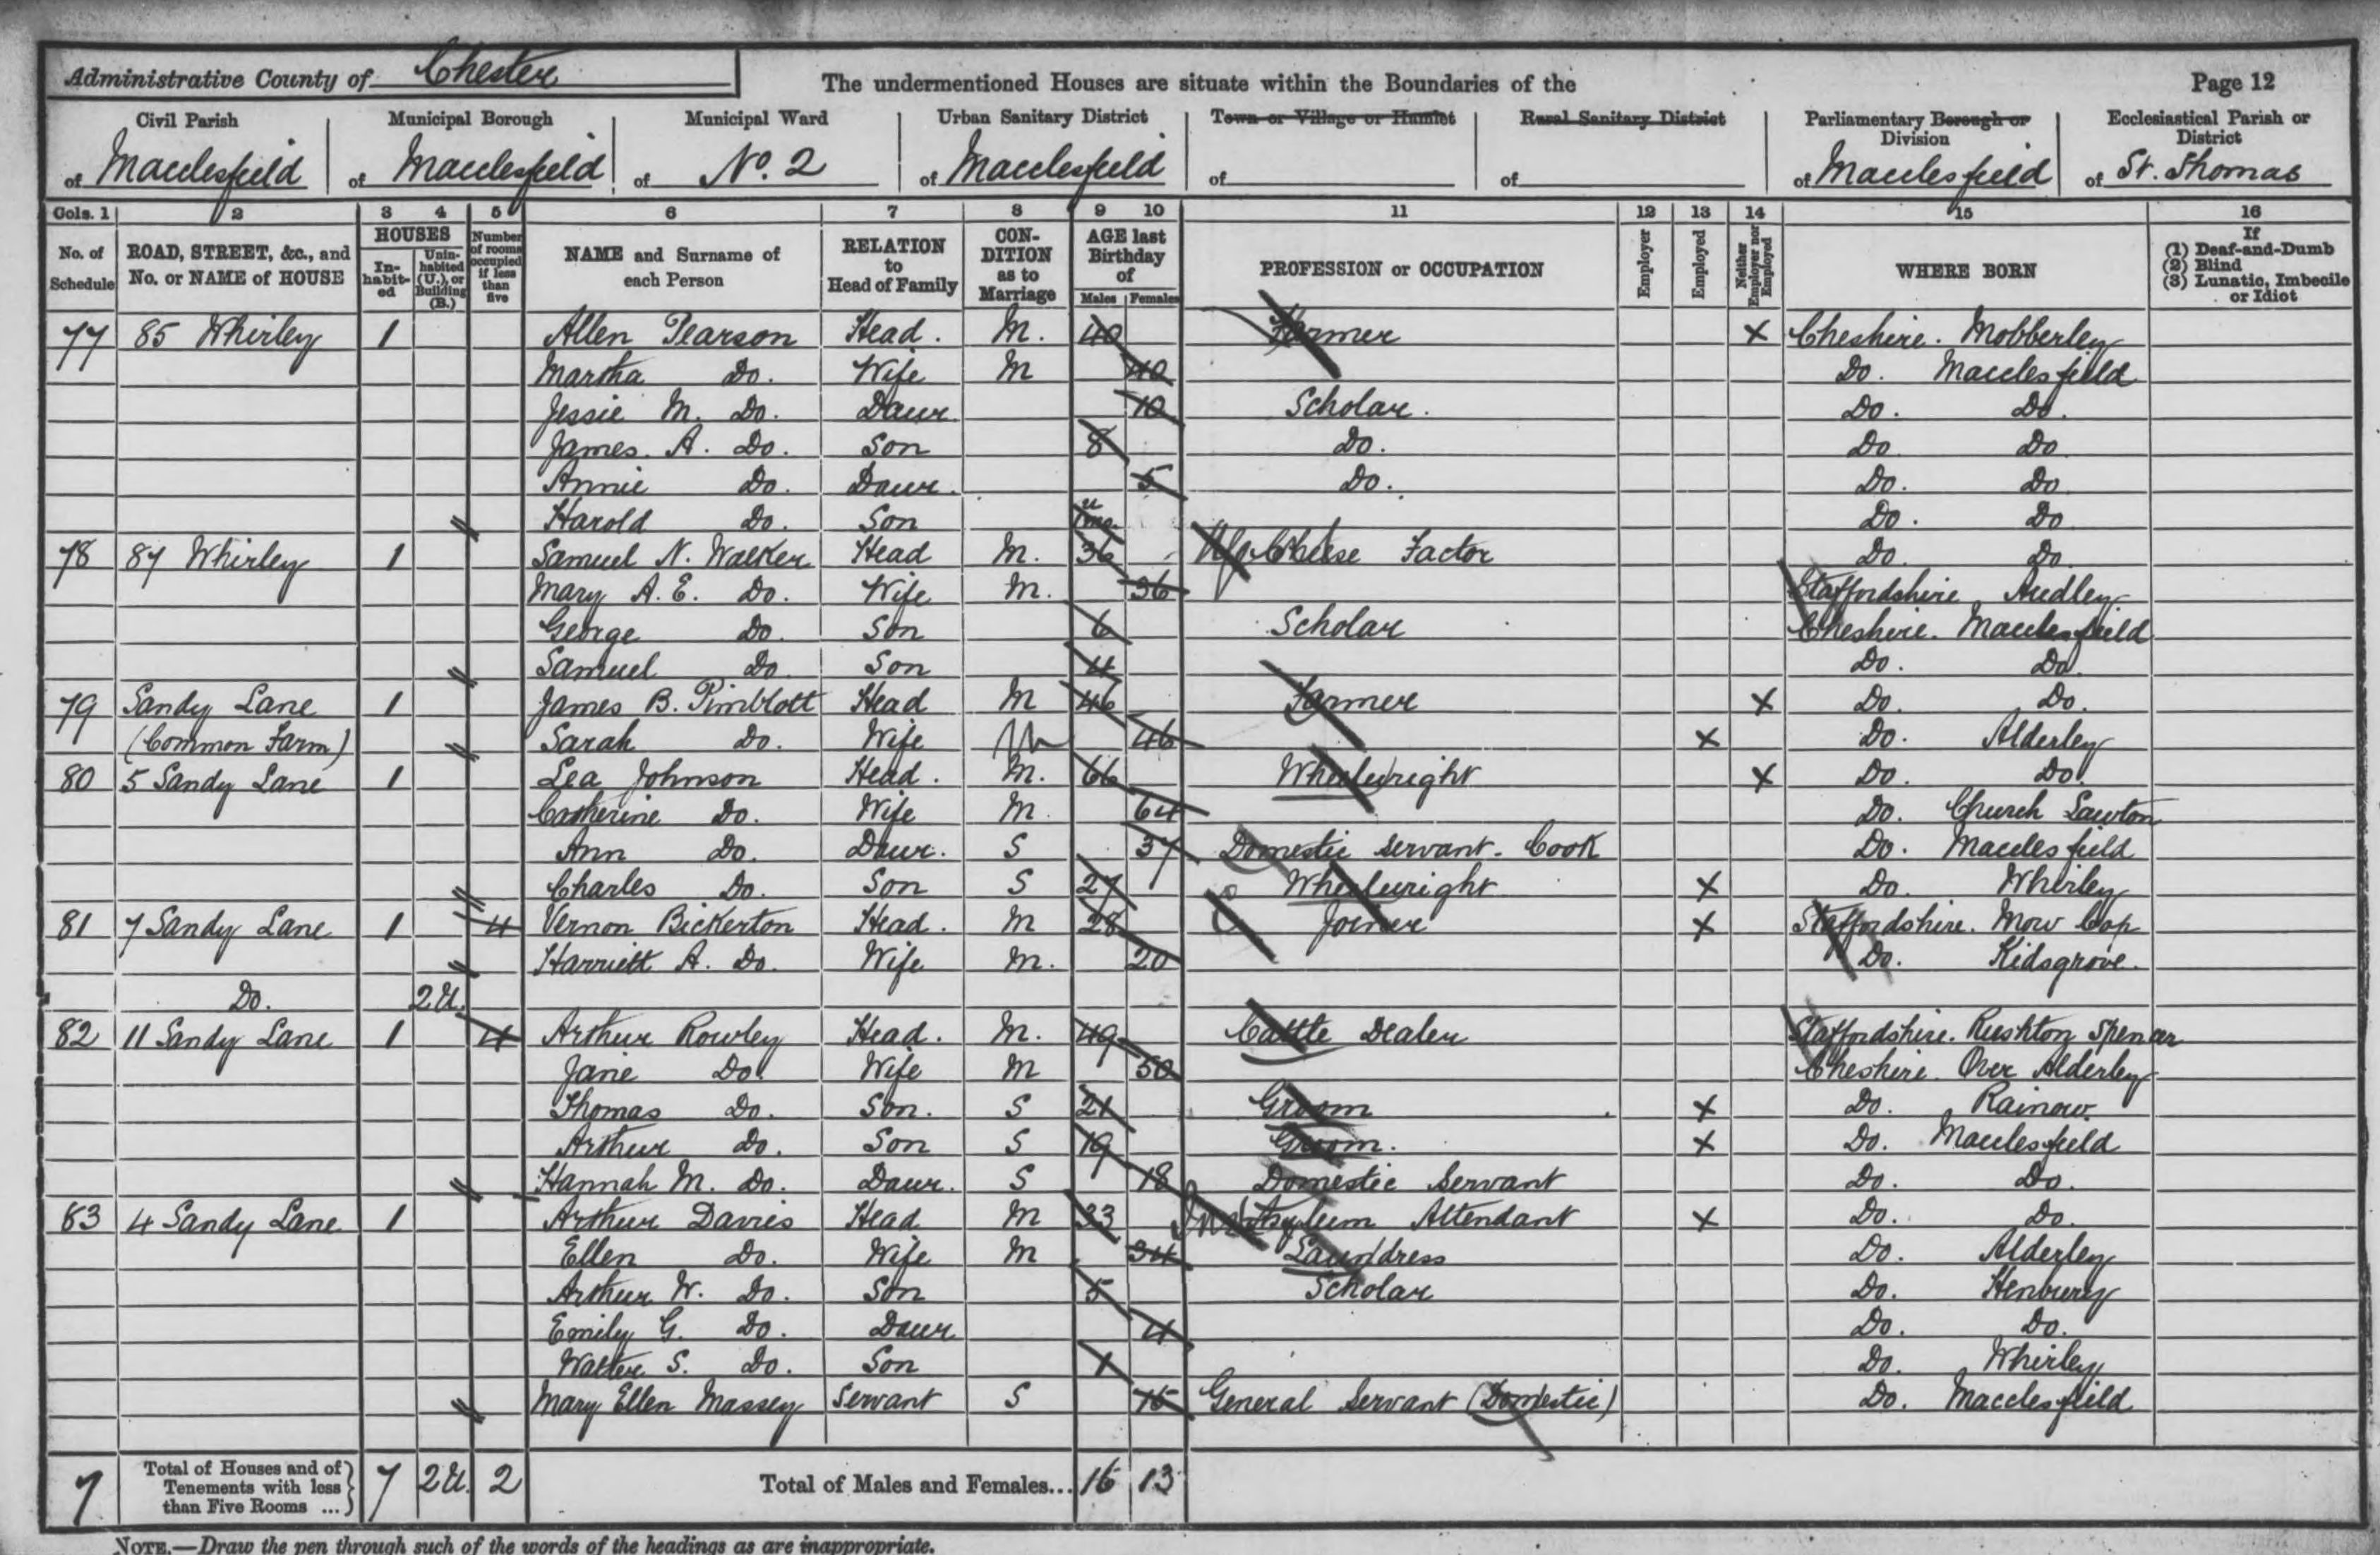 Administrative County of Chester
The undermentioned Houses are situate within the Boundaries of the
Page 12
Civil Parish of Macclesfield
Municipal Borough of Macclesfield
Municipal Ward of No. 2
Urban Sanitary District of Macclesfield
Town or Village or Hamlet of
Rural Sanitary District of
Parliamentary Borough or Division of Macclesfield
Ecclesiastical Parish or District of St. Thomas
Cols. 1 2 3 4 5 6 7 8 9 10 11 12 13 14 15 16
No. of Schedule
ROAD, STREET, &c., and No. or NAME of HOUSE
HOUSES
In-habit-ed
Unin-habited (U.), or Building (B.)
Number of rooms occupied if less than five
NAME and Surname of each Person
RELATION to Head of Family
CON-DITION as to Marriage
AGE last Birthday of
Males Females
PROFESSION or OCCUPATION
Employer
Employed
Neither Employer nor Employed
WHERE BORN
If (1) Deaf-and-Dumb (2) Blind (3) Lunatic, Imbecile or Idiot
77 85 Whirley 1 Allen Pearson Head. M. 40 Farmer X Cheshire. Mobberley
Martha Do. Wife M 40 Do. Macclesfield
Jessie M. Do. Daur. 10 Scholar. Do. Do.
James. A. Do. Son 8 Do. Do Do
Annie Do. Daur. 5 Do. Do. Do
Harold Do. Son Do. Do
78 87 Whirley 1 Samuel N. Walker Head M. 36 Cheese Factor Do. Do.
Mary A. E. Do. Wife M. 36 Staffordshire Audley
George Do. Son 6 Scholar Cheshire. Macclesfield
Samuel Do. Son 4 Do. Do.
79 Sandy Lane 1 James B. Pimblott Head M 46 Farmer X Do. Do.
(Common Farm) Sarah Do. Wife M 46 X Do. Alderley
80 5 Sandy Lane 1 Lea Johnson Head. M. 66 Wheelwright X Do. Do.
Catherine Do. Wife M. 64 Do. Church Lawton
Ann Do. Daur. S 37 Domestic Servant. Cook Do. Macclesfield
Charles Do. Son S 27 Wheelwright X Do. Whirley
81 7 Sandy Lane 1 4 Vernon Bickerton Head. M 28 Joiner X Staffordshire. Mow Cop
Harriett A. Do. Wife M. 20 Do. Kidsgrove.
Do. 2U.
82 11 Sandy Lane 1 4 Arthur Rowley Head. M. 49 Cattle Dealer Staffordshire. Rushton Spencer
Jane Do. Wife M 50 Cheshire. Over Alderley
Thomas Do. Son. S 21 Groom X Do. Rainow.
Arthur Do. Son S 19 Groom. X Do. Macclesfield
Hannah M. Do. Daur. S 18 Domestic Servant Do. Do.
83 4 Sandy Lane 1 Arthur Davies Head M 33 Asylum Attendant X Do. Do.
Ellen Do. Wife M 34 Laundress Do. Alderley
Arthur W. Do. Son 5 Scholar Do. Henbury
Emily G. Do. Daur. 4 Do. Do.
Walter S. Do. Son 1 Do. Whirley
Mary Ellen Massey Servant S 15 General Servant (Domestic) Do. Macclesfield
7 Total of Houses and of Tenements with less than Five Rooms ... 7 2U. 2 Total of Males and Females... 16 13
NOTE.—Draw the pen through such of the words of the headings as are inappropriate.